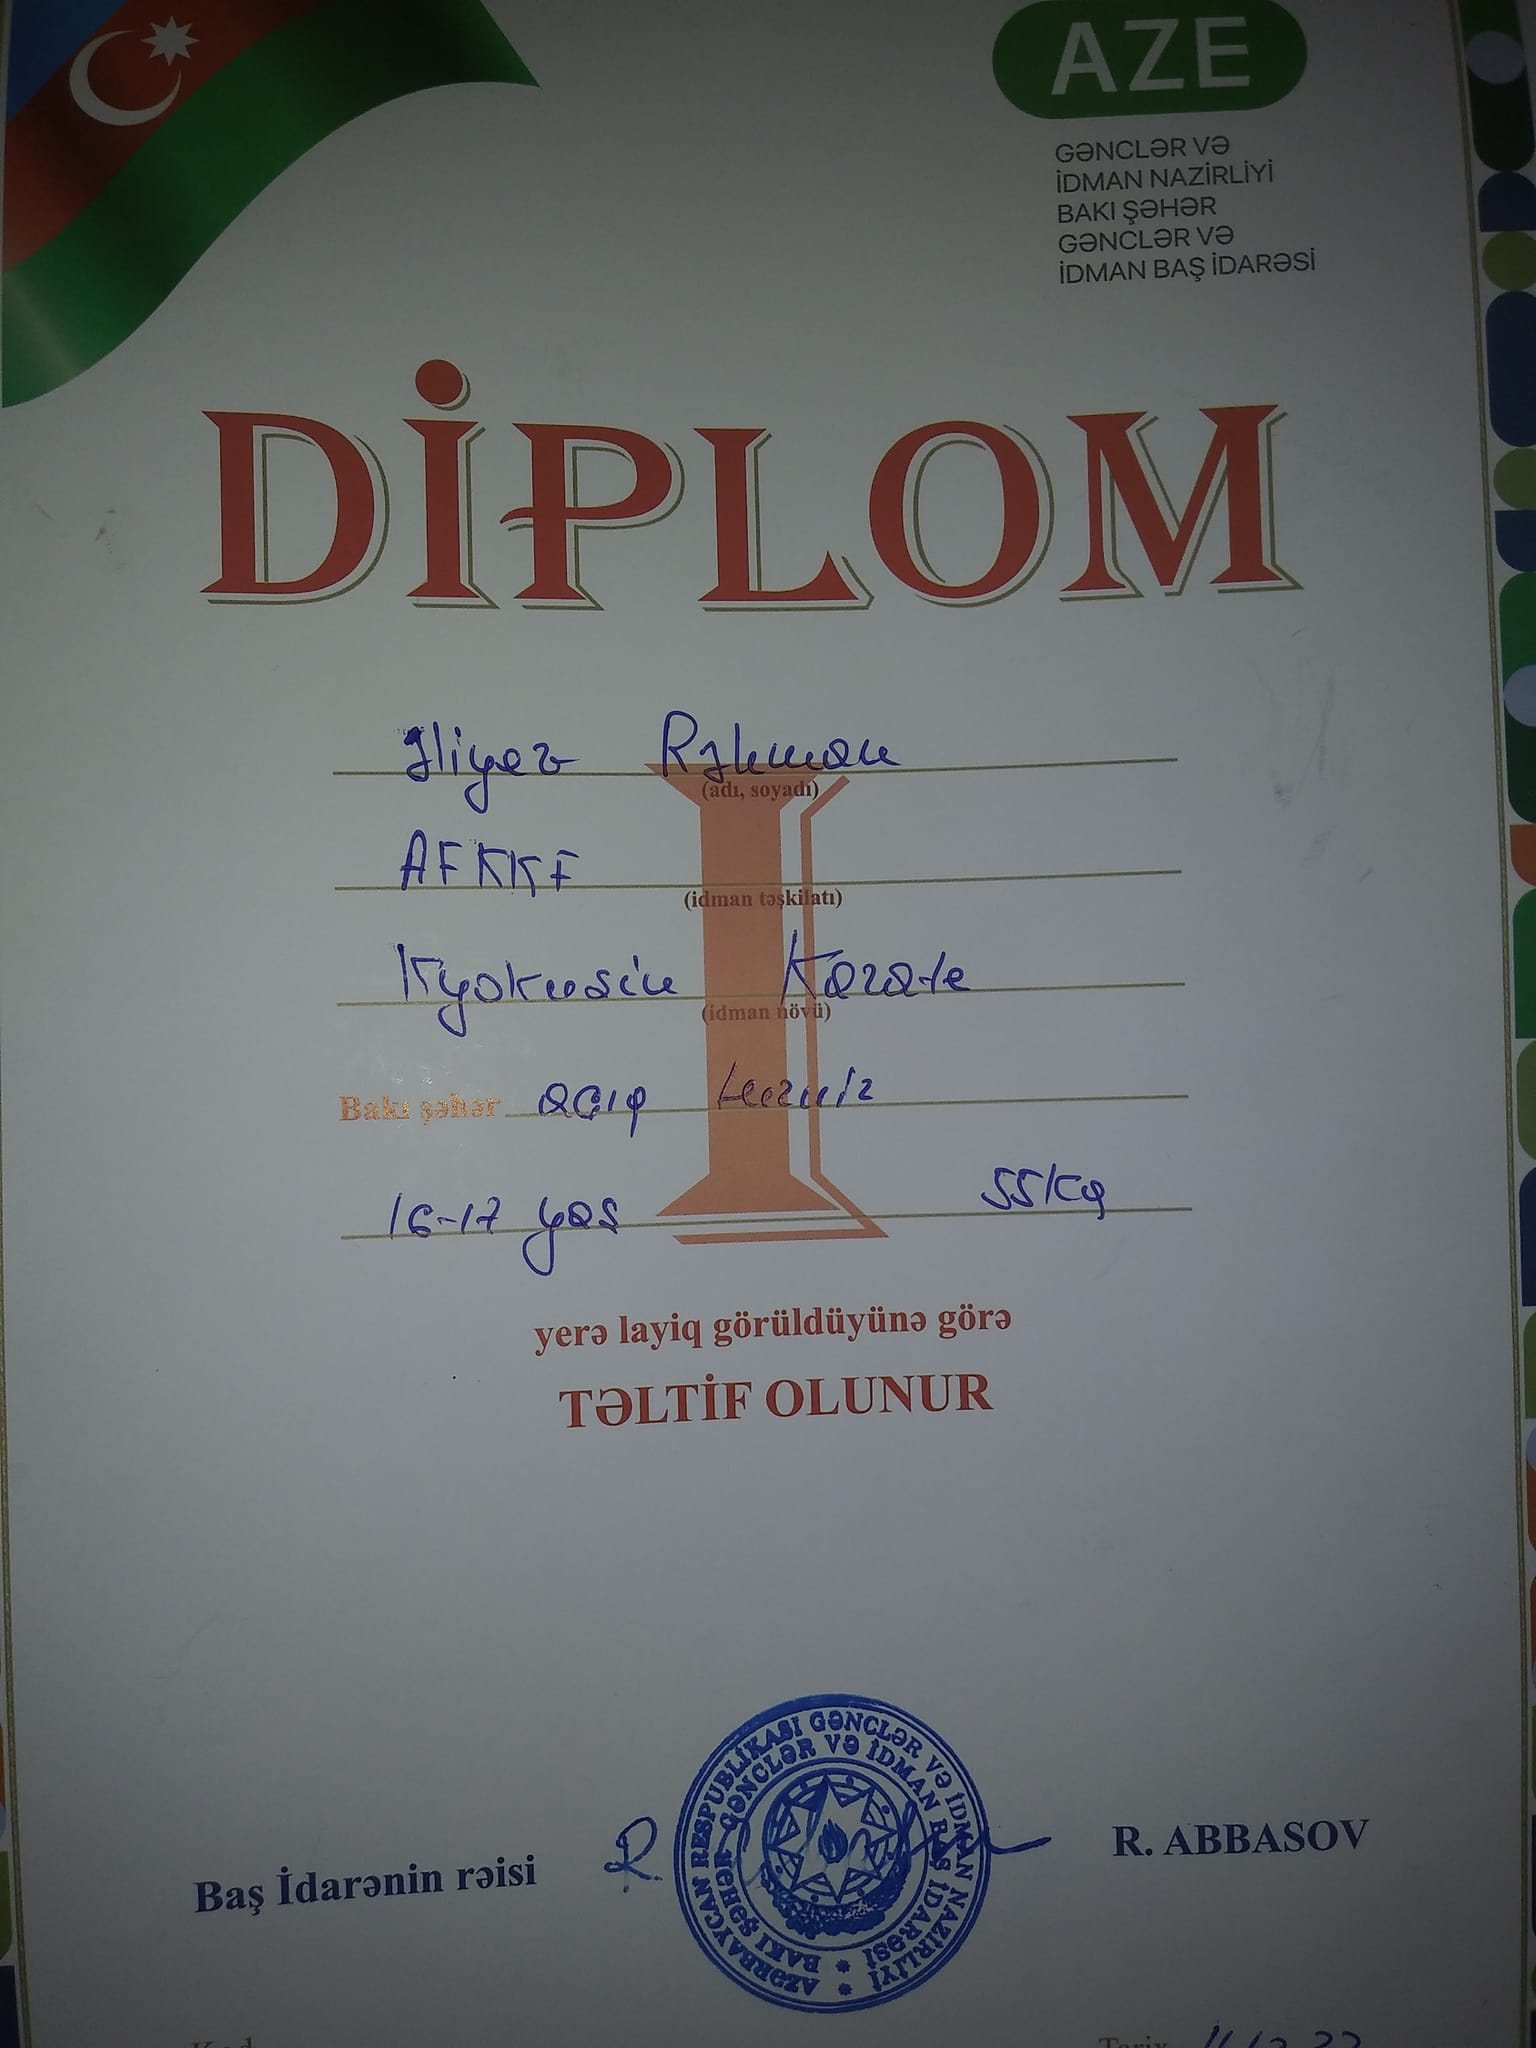 AZE
GƏNCLƏR VƏ
İDMAN NAZİRLİYİ
BAKI ŞƏHƏR
GƏNCLƏR VƏ
İDMAN BAŞ İDARƏSİ
DİPLOM
Rəhman
(adı, soyadı)
AFKKF
(idman təşkilatı)
Kyokusin Karate
(idman növü)
Bakı şəhər açıq turnir
I
16-17 yaş 55 kq
yerə layiq görüldüyünə görə
TƏLTİF OLUNUR
AZƏRBAYCAN RESPUBLİKASI GƏNCLƏR VƏ İDMAN NAZİRLİYİ
BAKI ŞƏHƏR GƏNCLƏR VƏ İDMAN BAŞ İDARƏSİ
Baş İdarənin rəisi R. ABBASOV